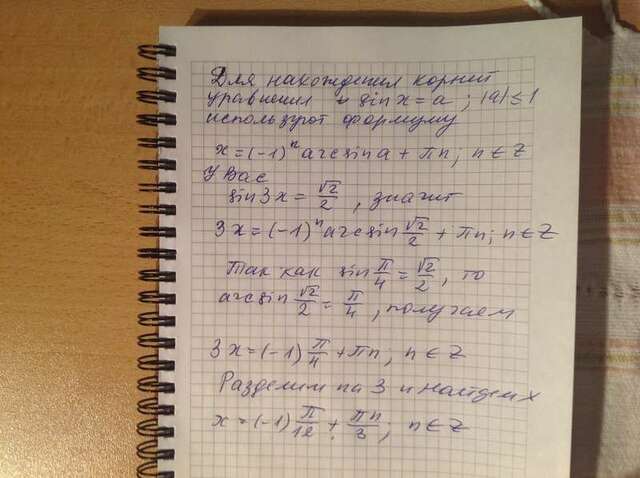 Для нахождения корней
уравнения sin x = a ; |a| ≤ 1
используют формулу
x = (-1)ⁿ arcsin a + πn ; n ∈ Z
У вас
sin 3x = √2/2 , значит
3x = (-1)ⁿ arcsin √2/2 + πn ; n ∈ Z
Так как sin π/4 = √2/2 , то
arcsin √2/2 = π/4 , получаем
3x = (-1) π/4 + πn ; n ∈ Z
Разделим на 3 и найдем x
x = (-1) π/12 + πn/3 ; n ∈ Z